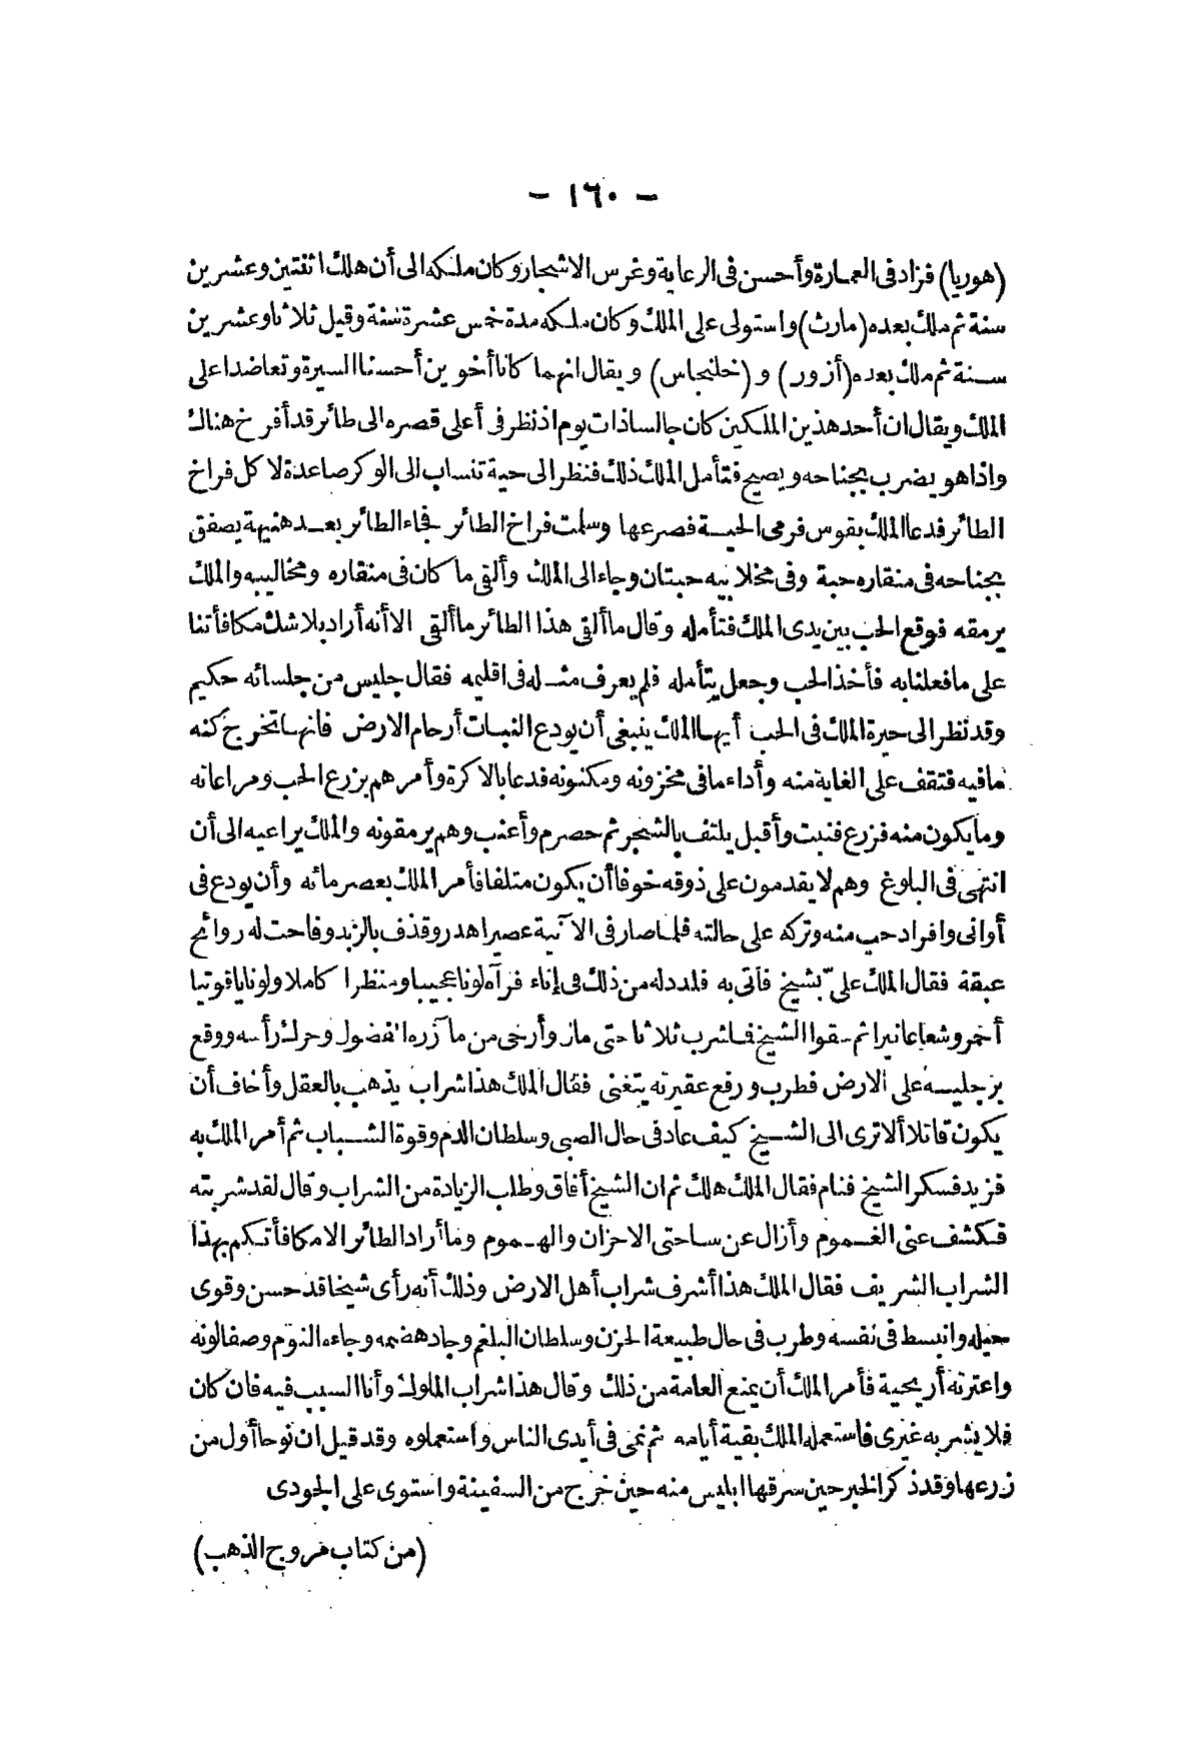 - ١٦٠ -
(هوريا) فزاد فى العمارة وأحسن فى الرعاية وغرس الاشجار وكان ملكه الى أن هلك اثنتين وعشرين
سنة ثم ملك بعده (مارث) واستولى على الملك وكان ملكه مدة خمس عشرة سنة وقيل ثلاثا وعشرين
سنة ثم ملك بعده (أزور) و (خلنجاس) ويقال انهما كانا أخوين أحسنا السيرة وتعاضدا على
الملك ويقال ان أحد هذين الملكين كان جالسا ذات يوم اذ نظر فى أعلى قصره الى طائر قد أفرخ هناك
واذا هو يضرب بجناحه ويصيح فتأمل الملك ذلك فنظر الى حية تنساب الى الوكر صاعدة لا كل فراخ
الطائر فدعا الملك بقوس فرمى الحية فصرعها وسلمت فراخ الطائر فجاء الطائر بعد هنيهة يصفق
بجناحه فى منقاره حبة وفى مخلابيه حبتان وجاء الى الملك وألقى ما كان فى منقاره ومخاليبه والملك
يرمقه فوقع الحب بين يدى الملك فتأمله وقال ما ألقى هذا الطائر ما ألقى الا أنه أراد بلا شك مكافأتنا
على ما فعلنا به فأخذ الحب وجعل يتأمله فلم يعرف مثله فى اقليمه فقال جليس من جلسائه حكيم
وقد نظر الى حيرة الملك فى الحب أيها الملك ينبغى أن يودع النبات أرحام الارض فانها تخرج كنه
ما فيه فتقف على الغاية منه وأداء ما فى مخزونه ومكنونه فدعا بالاكرة وأمرهم بزرع الحب ومراعاته
وما يكون منه فزرع فنبت وأقبل يلتف بالشجر ثم حصرم وأعنب وهم يرمقونه والملك يراعيه الى أن
انتهى فى البلوغ وهم لا يقدمون على ذوقه خوفا أن يكون متلفا فأمر الملك بعصر مائه وأن يودع فى
أوانى وافراد حب منه وتركه على حالته فلما صار فى الآنية عصيرا هدر وقذف بالزبد وفاحت له روائح
عبقة فقال الملك علىّ بشيخ فأتى به فلدد له من ذلك فى إناء فرآه لونا عجيبا ومنظرا كاملا ولونا ياقوتيا
أحمر وشعاعا نيرا ثم سقوا الشيخ فما شرب ثلاثا حتى مال وأرخى من مآزره الفضول وحرك رأسه ووقع
برجليه على الارض فطرب ورفع عقيرته يتغنى فقال الملك هذا شراب يذهب بالعقل وأخاف أن
يكون قاتلا ألا ترى الى الشيخ كيف عاد فى حال الصبى وسلطان الدم وقوة الشباب ثم أمر الملك به
فزيد فسكر الشيخ فنام فقال الملك هلك ثم ان الشيخ أفاق وطلب الزيادة من الشراب وقال لقد شربته
فكشف عنى الغموم وأزال عن ساحتى الاحزان والهموم وما أراد الطائر الا مكافأتكم بهذا
الشراب الشريف فقال الملك هذا أشرف شراب أهل الارض وذلك أنه رأى شيخا قد حسن وقوى
حيله وانبسط فى نفسه وطرب فى حال طبيعة الحزن وسلطان البلغم وجاد هضمه وجاءه النوم وصفا لونه
واعترته أريحية فأمر الملك أن يمنع العامة من ذلك وقال هذا شراب الملوك وأنا السبب فيه فان كان
فلا يشربه غيرى فاستعمله الملك بقية أيامه ثم نمى فى أيدى الناس واستعملوه وقد قيل ان نوحا أول من
زرعها وقد ذكر الخبر حين سرقها ابليس منه حين خرج من السفينة واستوى على الجودى
(من كتاب مروج الذهب)